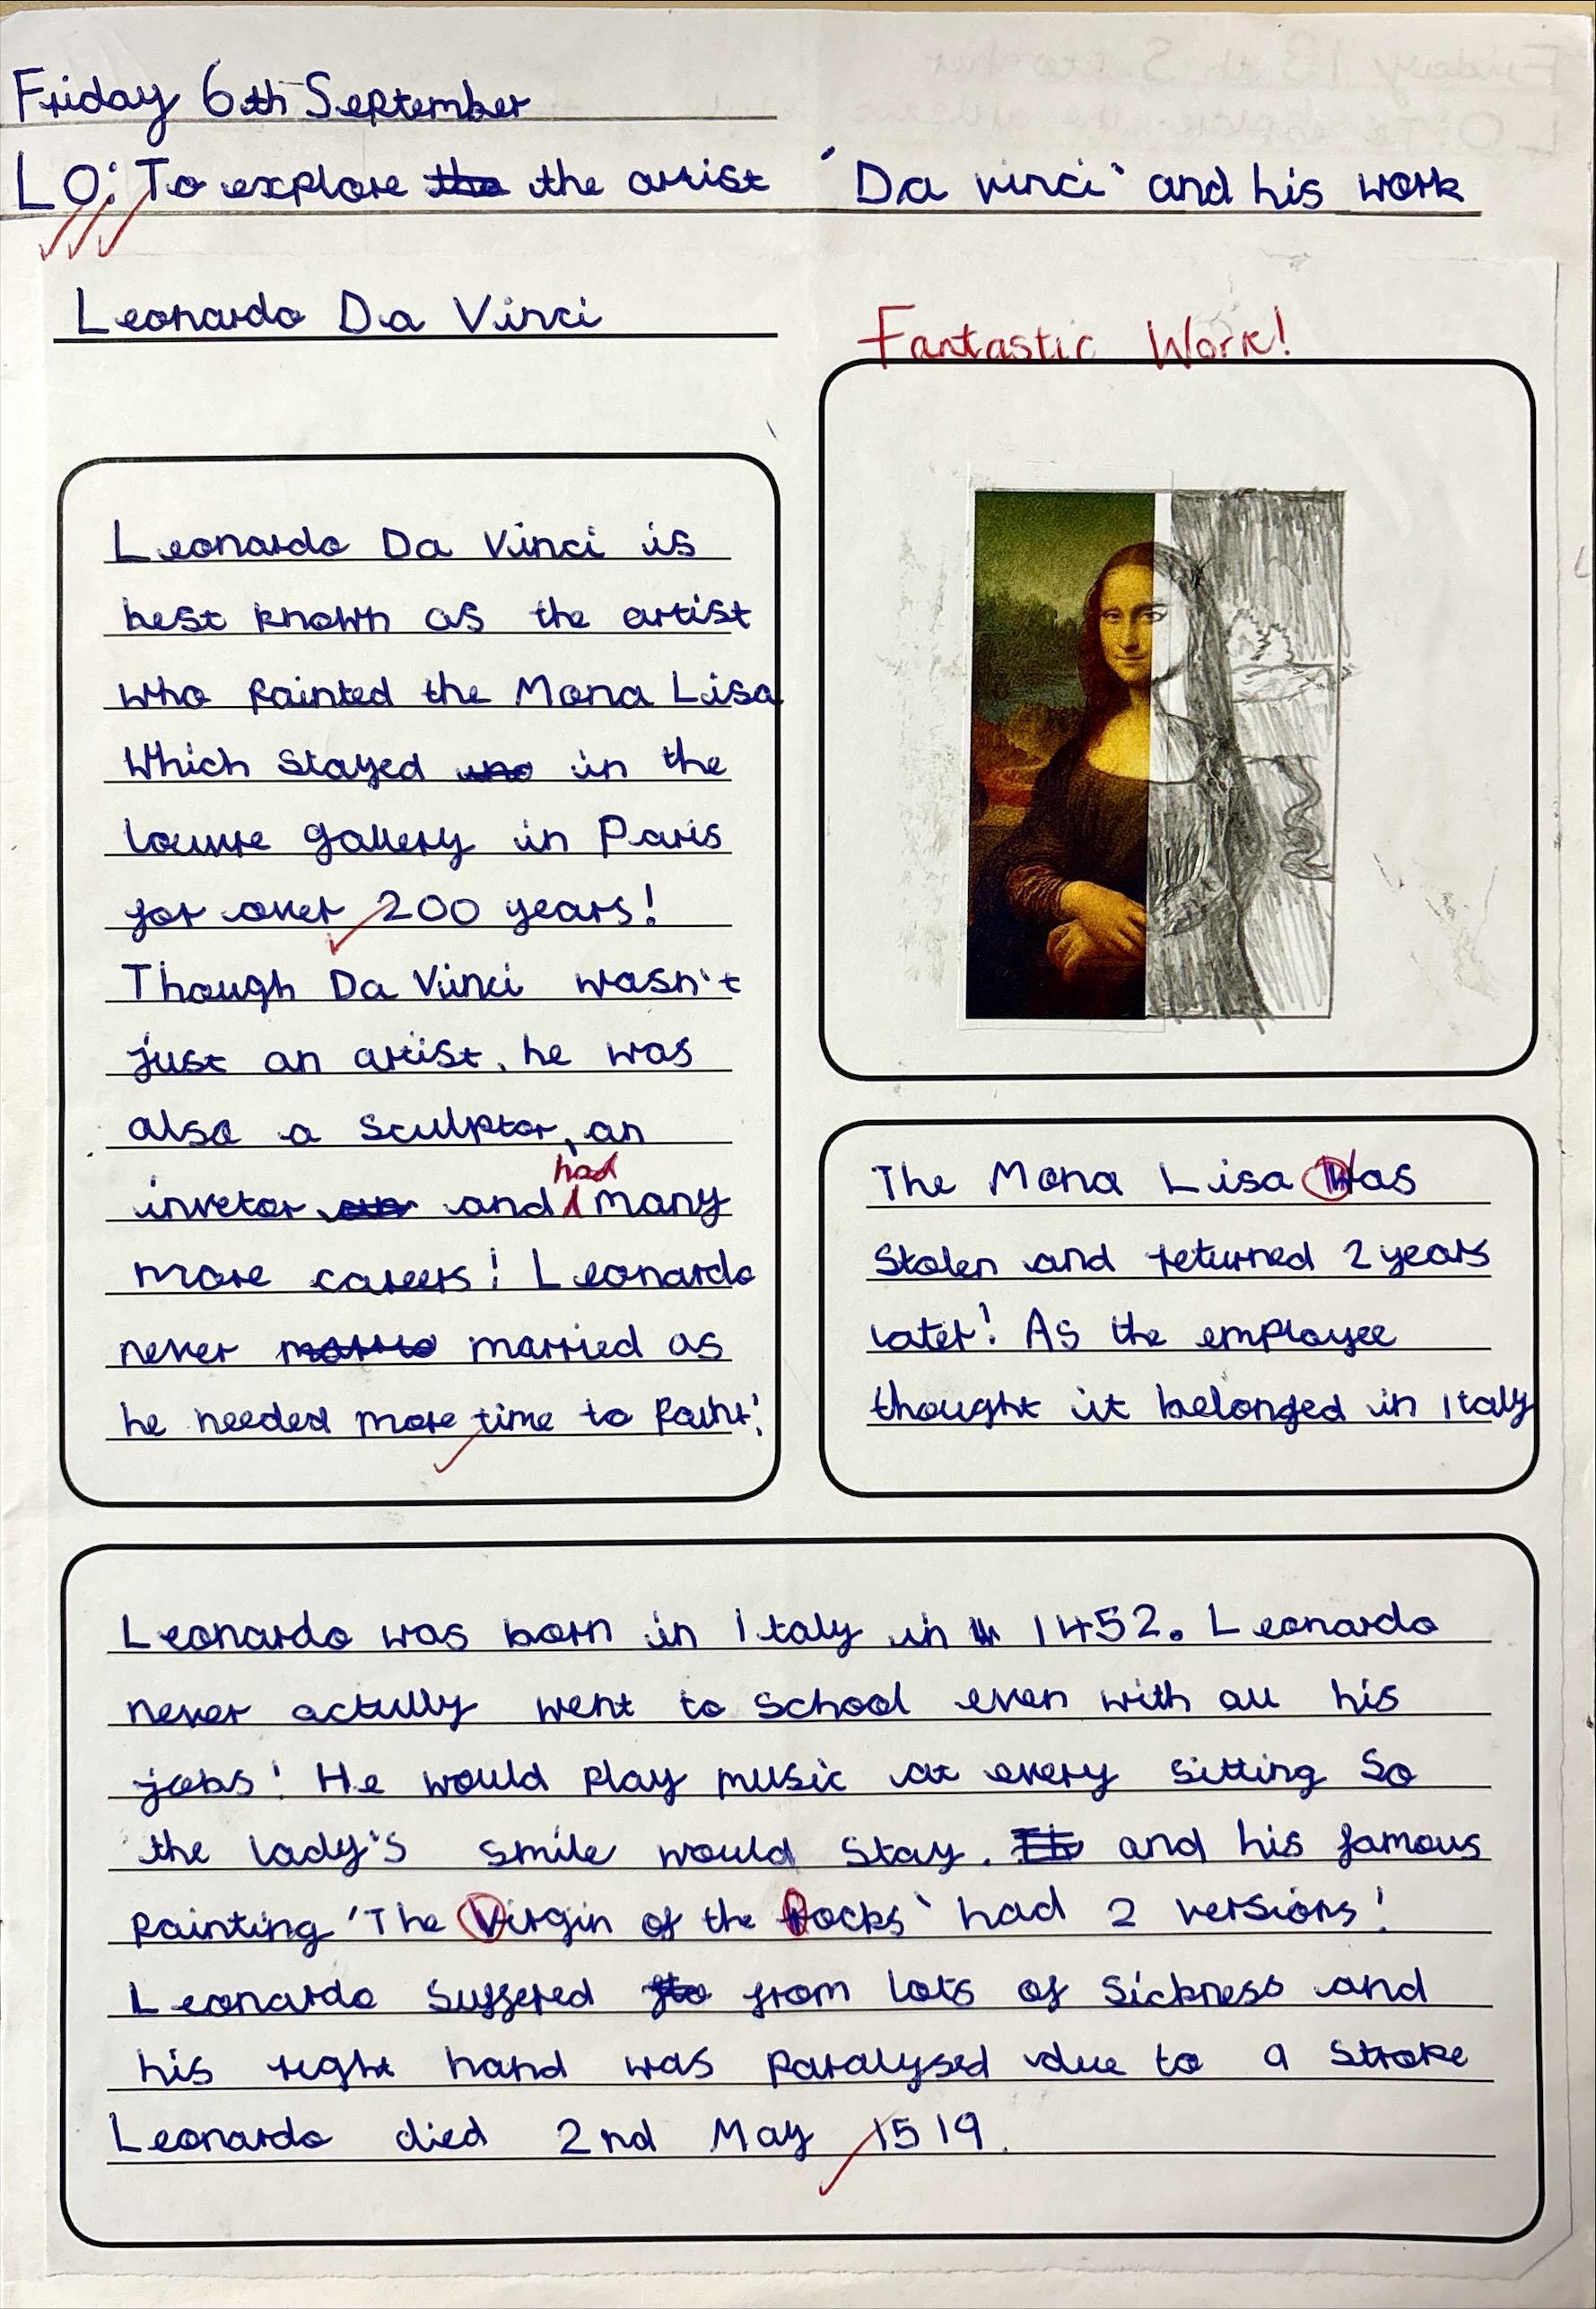 Friday 6th September
LO: To explore the the artist 'Da vinci' and his work
Leonardo Da Vinci
Fantastic Work!
Leonardo Da Vinci is
best known as the artist
who painted the Mona Lisa
Which stayed in the
louvre gallery in Paris
for over 200 years!
Though Da Vinci wasn't
just an artist, he was
also a sculptor, an
invetor and had many
more careers! Leonardo
never married as
he needed more time to Paint!
The Mona Lisa Was
Stolen and returned 2 years
later! As the employee
thought it belonged in Italy
Leonardo was born in Italy in 1452. Leonardo
never actully went to School even with all his
jobs! He would play music at every sitting So
the lady's smile would stay. and his famous
Painting 'The Virgin of the Rocks' had 2 versions!
Leonardo suffered from lots of sickness and
his right hand was Paralysed due to a stroke
Leonardo died 2nd May 1519.